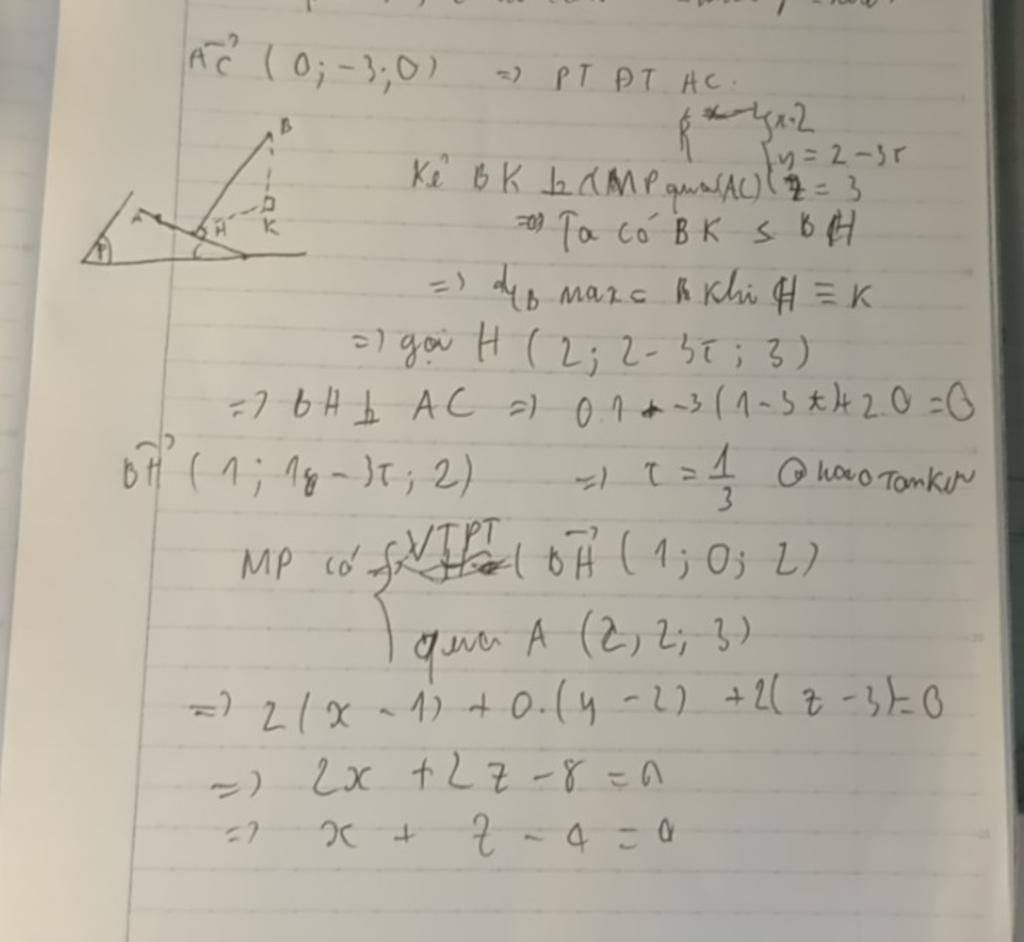 AC (0; -3; 0) => PT ĐT AC.
x = 2
y = 2 - 3t
Kẻ BK ⊥ (MP qua (AC) z = 3
B
A
H
K
C
P
=> Ta có BK ≤ BH
=> d/B max = B Khi H ≡ K
=> gọi H (2; 2 - 3t; 3)
=> BH ⊥ AC => 0.1 + -3(1 - 3t) + 2.0 = 0
BH (1; 1 - 3t; 2) => t = 1/3 @haotankun
MP có VTPT BH (1; 0; 2)
qua A (2, 2; 3)
=> 2(x - 1) + 0.(y - 2) + 2(z - 3) = 0
=> 2x + 2z - 8 = 0
=> x + z - 4 = 0